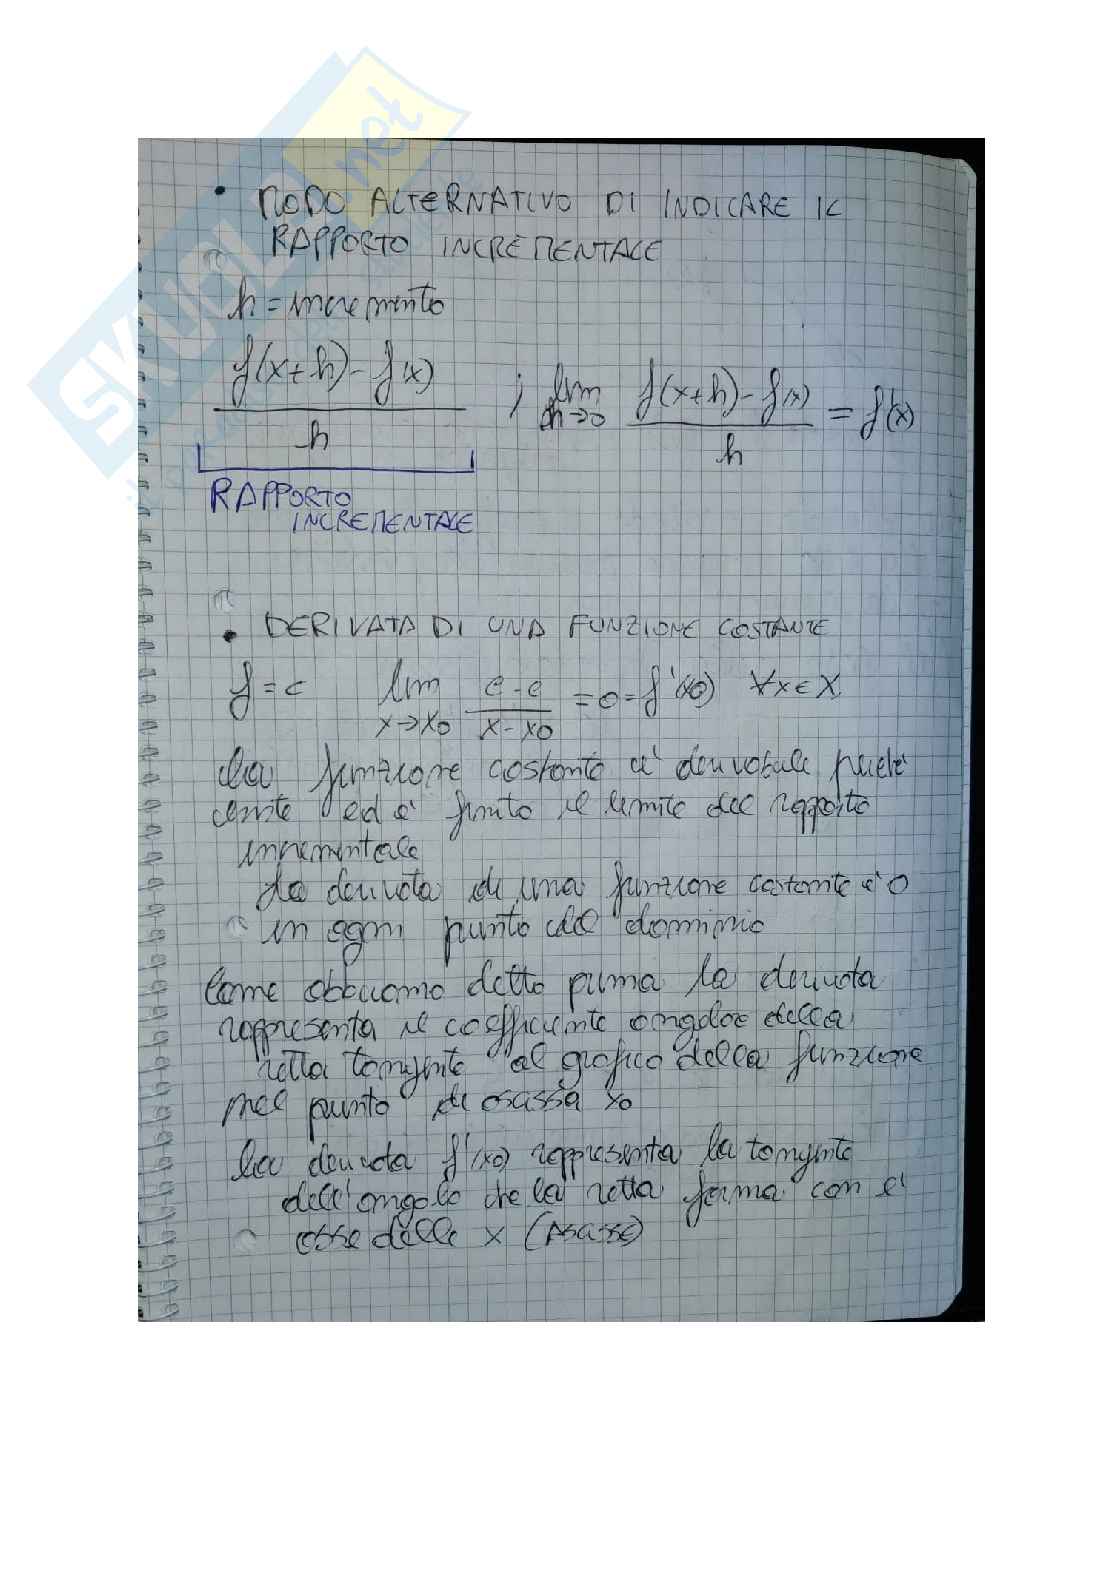 • MODO ALTERNATIVO DI INDICARE IL
RAPPORTO INCREMENTALE
h = incremento
f(x+h) - f(x) / h ; lim h→0 f(x+h) - f(x) / h = f'(x)
RAPPORTO
INCREMENTALE
• DERIVATA DI UNA FUNZIONE COSTANTE
f = c lim x→x0 c - c / x - x0 = 0 = f'(x0) ∀x∈X
La funzione costante e' derivabile perché
esiste ed e' finito il limite del rapporto
incrementale
La derivata di una funzione costante e' 0
in ogni punto del dominio
Come abbiamo detto prima la derivata
rappresenta il coefficiente angolare della
retta tangente al grafico della funzione
nel punto di ascissa x0
La derivata f'(x0) rappresenta la tangente
dell'angolo che la retta forma con l'
asse delle x (Ascisse)
SKUOLA.net